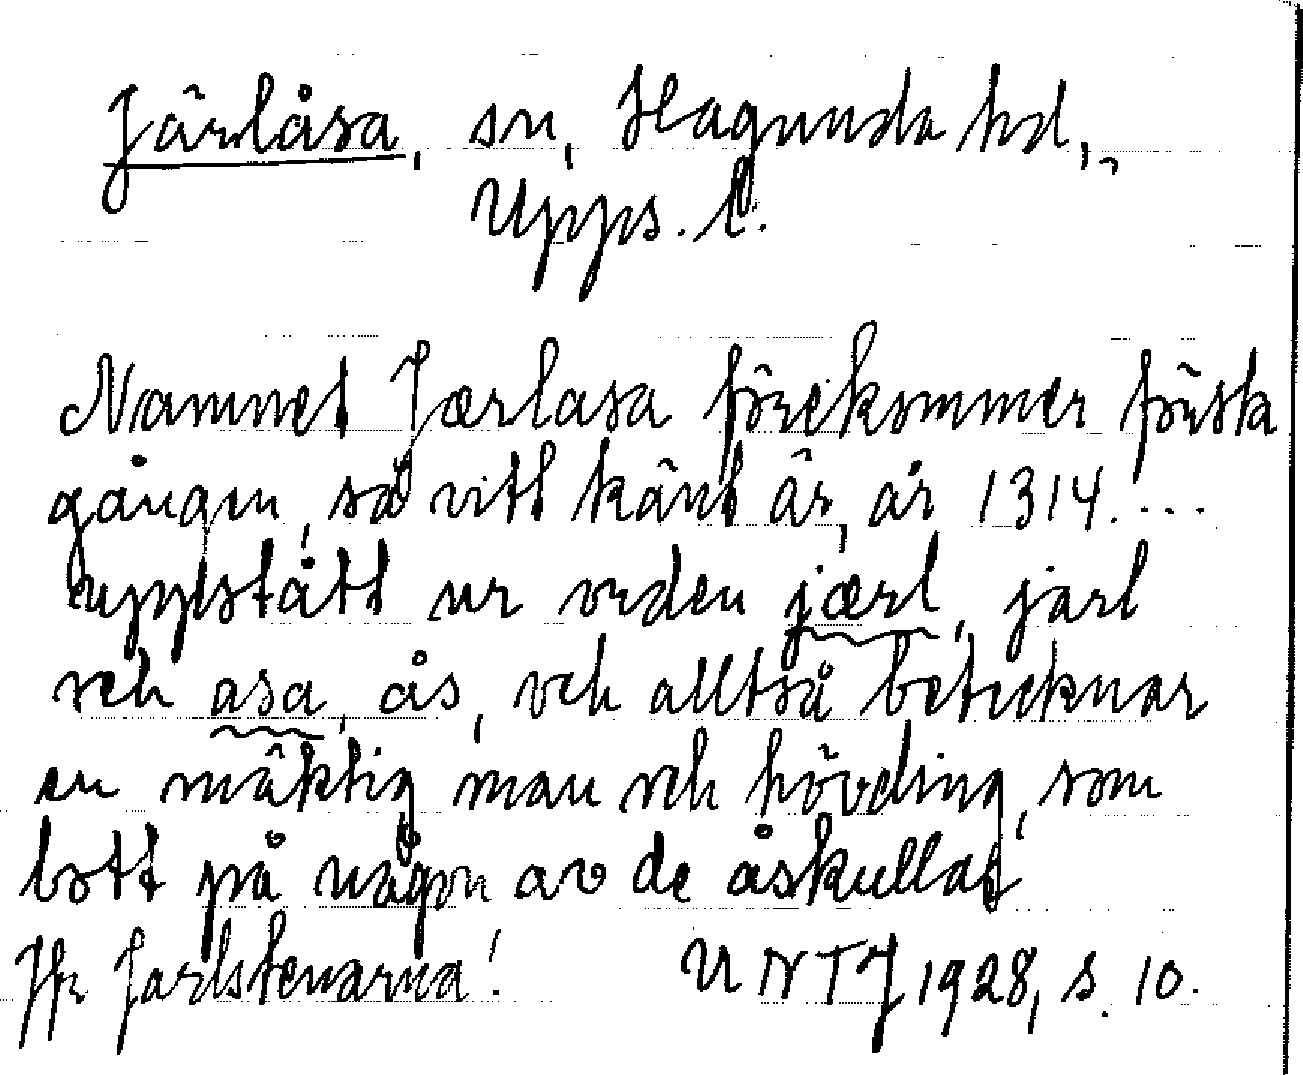 Järlåsa, sn, Hagunda hd,
Upps. l.
Namnet Jærlasa förekommer första
gången, så vitt känt är, år 1314....
uppstått ur orden jærl, jarl
och asa, ås, och alltså betecknar
en mäktig man och hövding, som
bott på någon av de åskullar
Jfr Jarlstenarna! UNTJ 1928, s. 10.